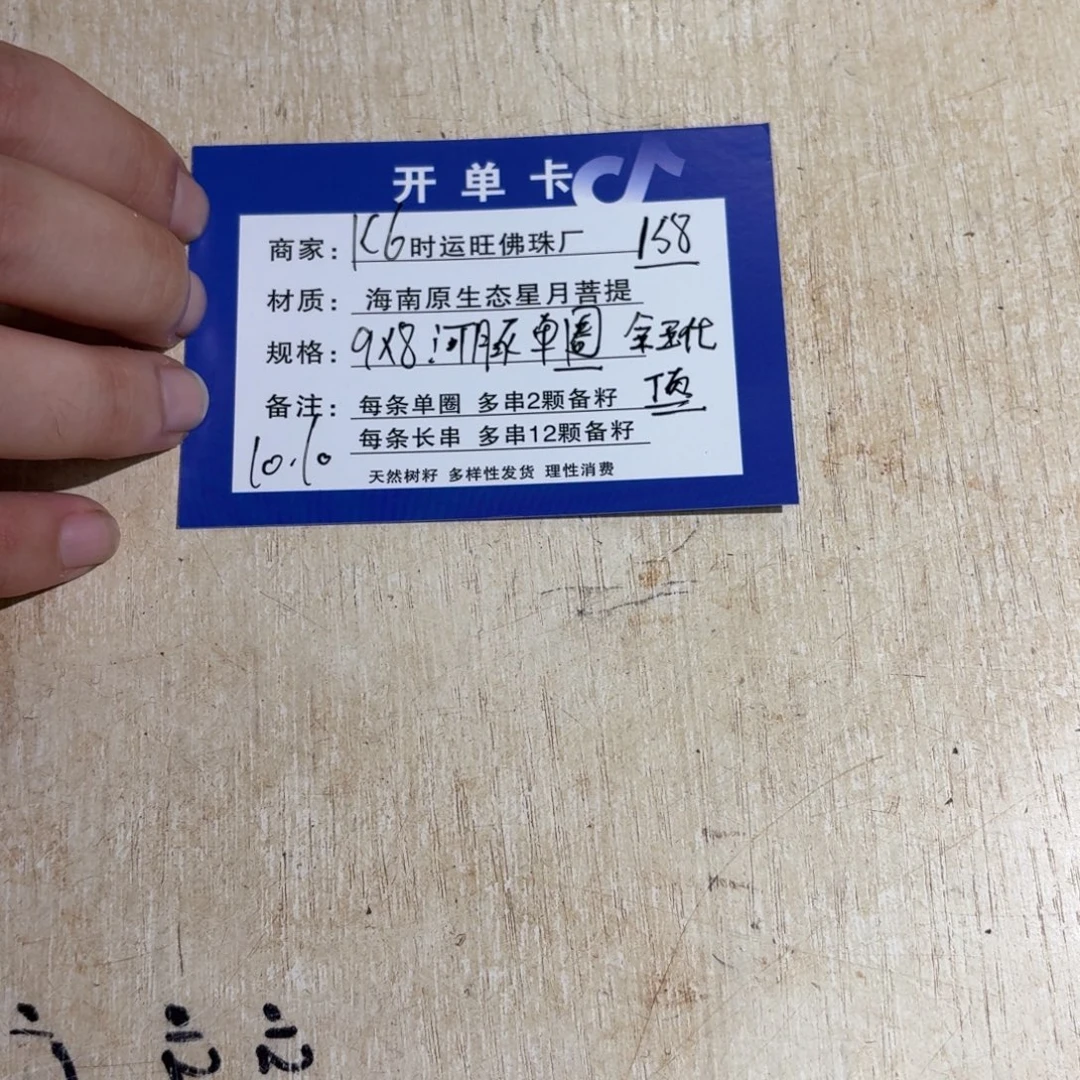 开单卡
商家：K6时运旺佛珠厂 158
材质：海南原生态星月菩提
规格：9X8河豚单圈 全玉化
顶
备注：每条单圈 多串2颗备籽
每条长串 多串12颗备籽
10.10
天然树籽 多样性发货 理性消费